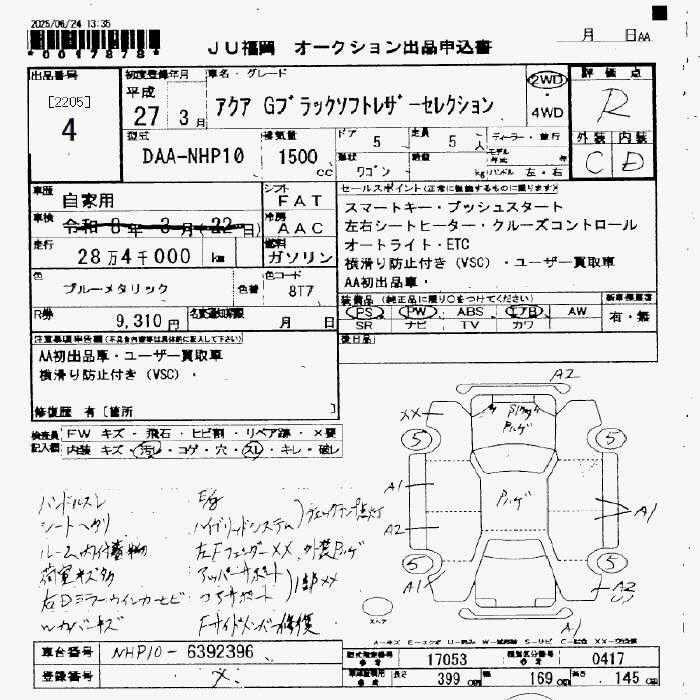 2025/06/24 13:35
*0017878*
JU福岡 オークション出品申込書
月 日AA
出品番号
[2205]
4
初度登録年月
平成
27年3月
車名・グレード
アクア Gブラックソフトレザーセレクション
2WD
・
4WD
評価点
R
外装 内装
C D
型式
DAA-NHP10
排気量
1500
cc
ドア 5
定員 5人
形状 ワゴン
積載 kg
ディーラー・並行
モデル年式 年
ハンドル 左・右
車歴 自家用
車検 令和 8年 3月(22日)
走行 28万4千000 km
シフト FAT
冷房 AAC
燃料 ガソリン
セールスポイント(正常に機能するものに限ります)
スマートキー・プッシュスタート
左右シートヒーター・クルーズコントロール
オートライト・ETC
横滑り防止付き(VSC)・ユーザー買取車
AA初出品車・
色 ブルーメタリック 色替
色コード 8T7
R券 9,310円
名変通知期限 月 日
装備品 (純正品に限り○をつけてください)
PS PW ABS エアB AW
SR ナビ TV カワ
新車保証書
有・無
後日品
注意事項申告欄(不具合内容等は具体的に記入して下さい)
AA初出品車・ユーザー買取車
横滑り防止付き(VSC)・
修復歴 有[箇所 ]
検査員記入欄
FW キズ・飛石・ヒビ割・リペア跡・×要
内装 キズ・汚レ・コゲ・穴・スレ・キレ・破レ
ハンドルスレ
シートヘタリ
ルーム内付着物
荷室キズ多
右Dミラーウインカーヒビ
Wカバーキズ
ハイブリッドシステム
左Fフェンダー××
外装ハゲ
アッパーサポート
コアサポート
一部××
Fサイドメンバー修復
A2
××
5
5
A1
A2
A1
A1
5
5
A2
A1
スペア
A-キズ E-エクボ U-凹み W-補修跡 S-サビ C-腐食 XX-交換済
車台番号 NHP10-6392396
登録番号 ×
型式指定番号 参考 17053
類別区分番号 参考 0417
長さ 399
幅 169
高さ 145